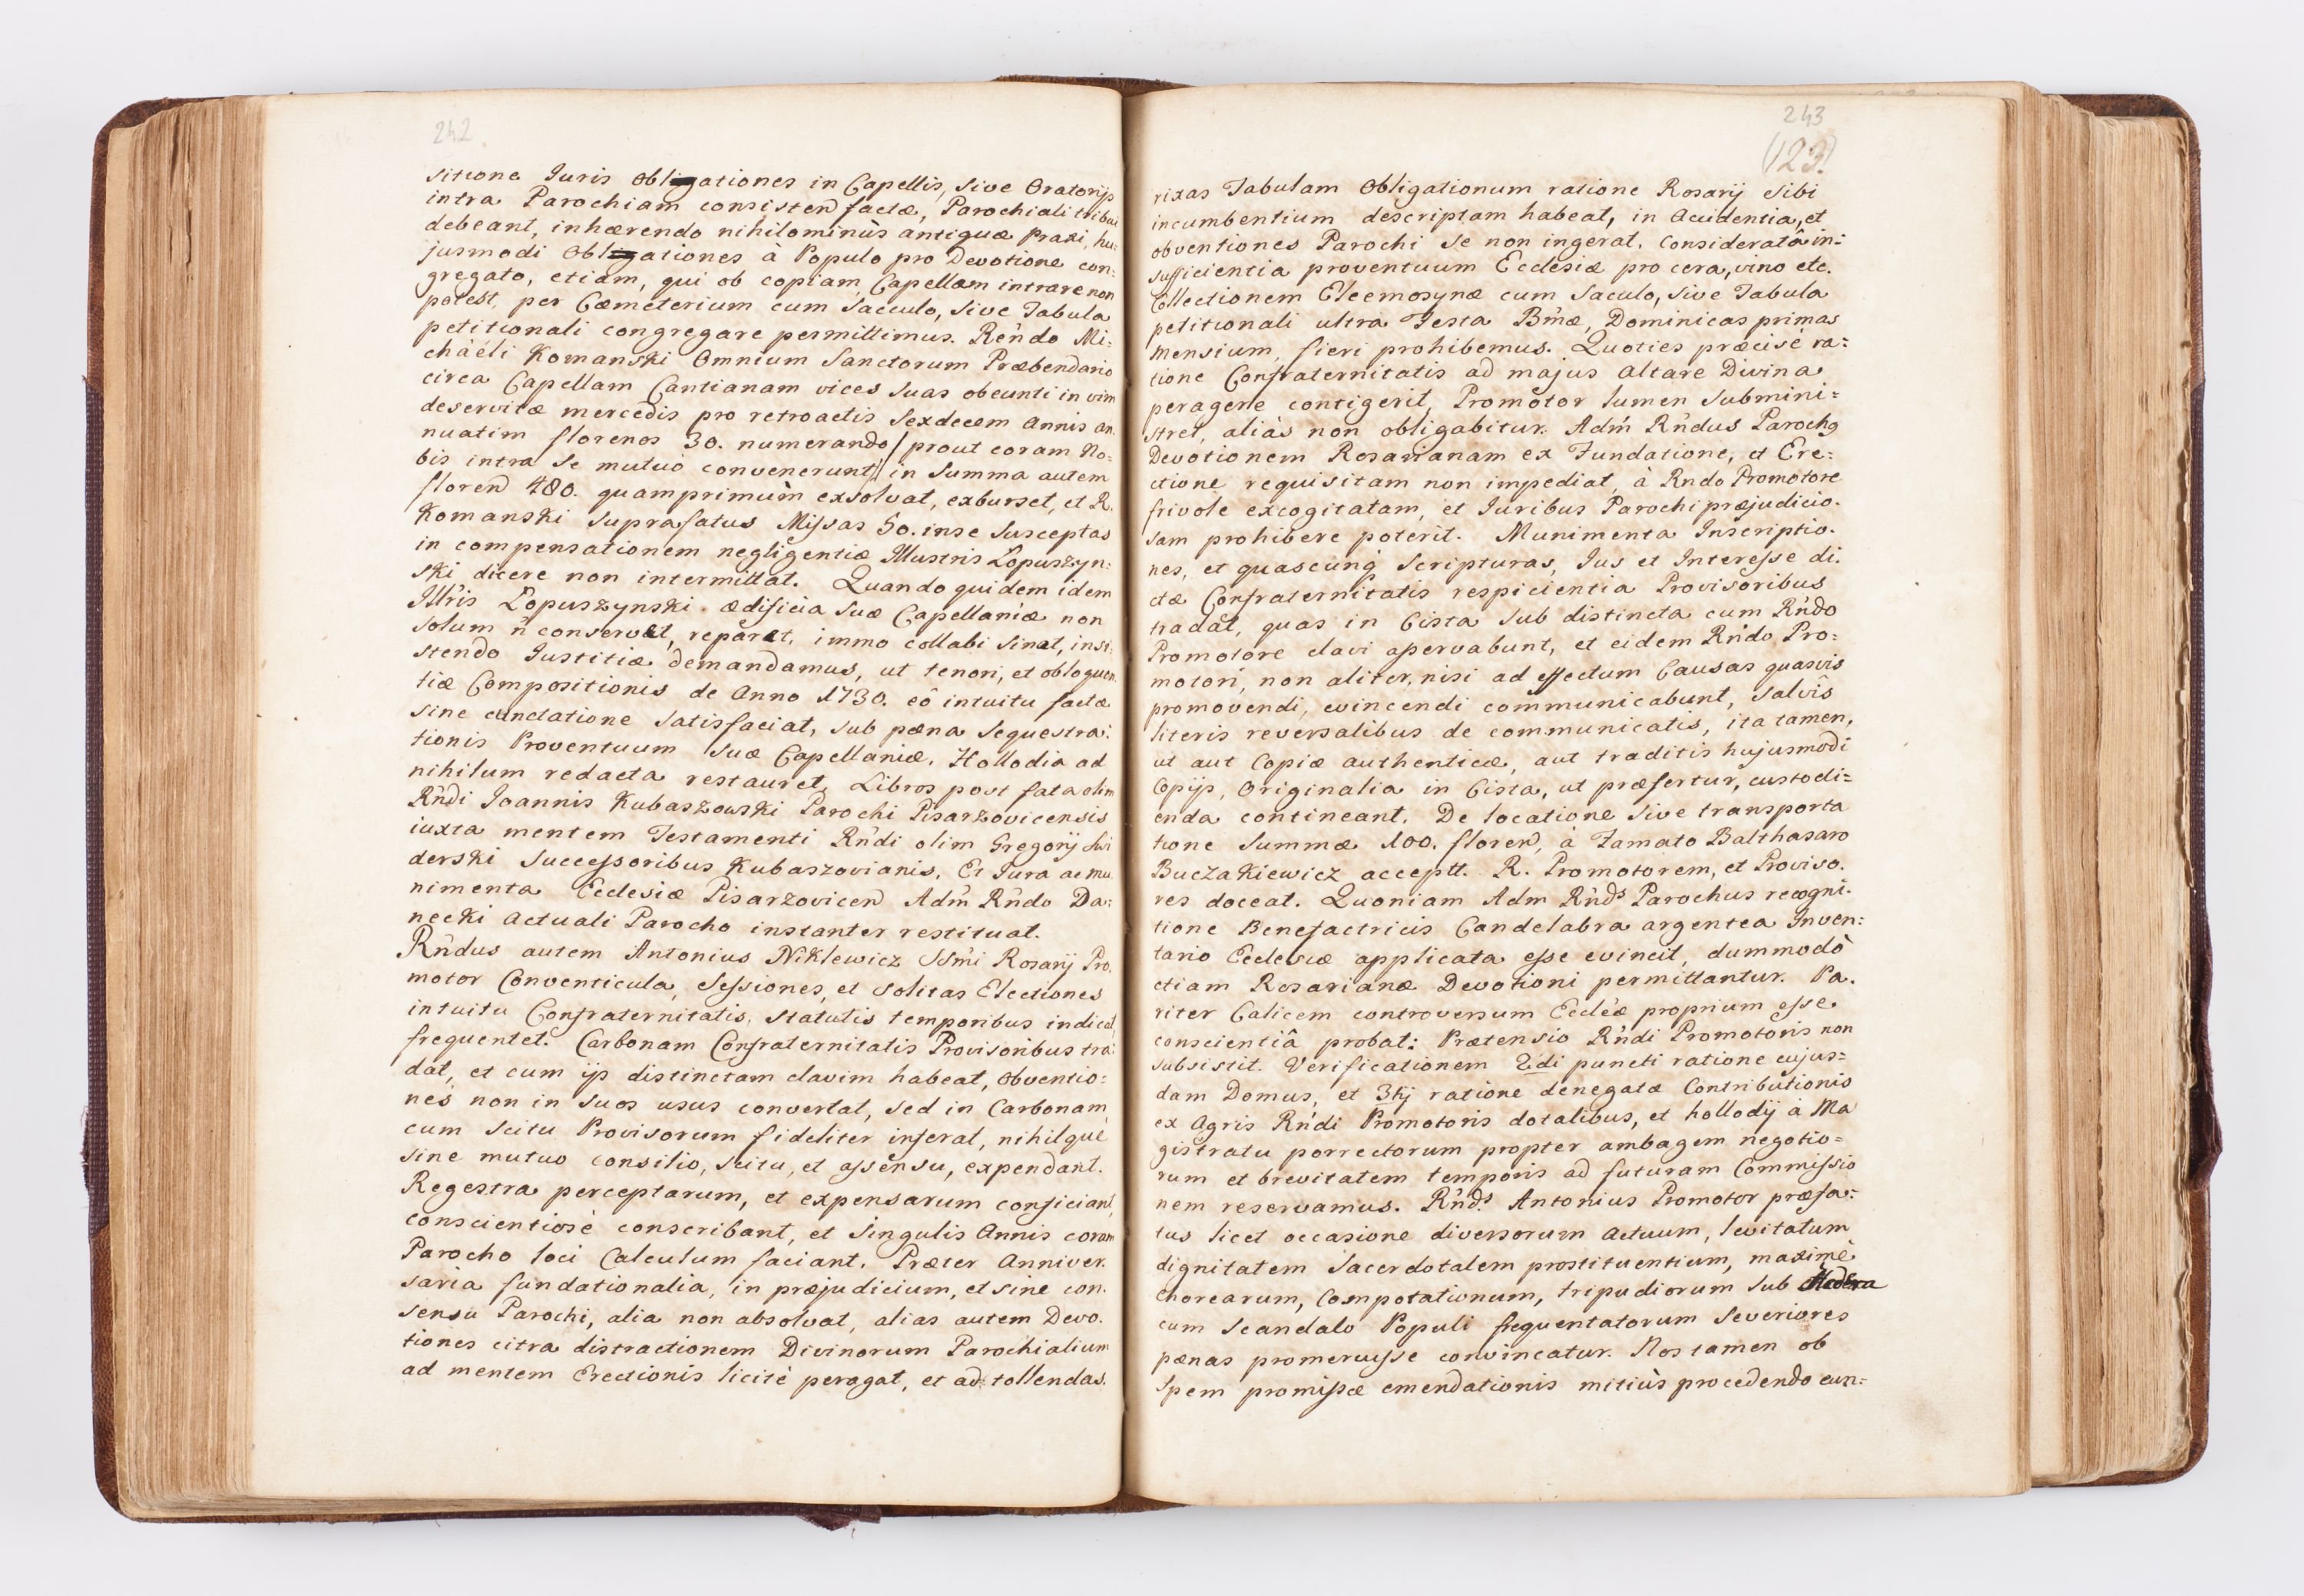 242
sitione Iuris obligationes in Capellis, sive Oratorijs
intra Parochiam consisten factæ, Parochiali tribui
debeant, inhærendo nihilominùs antiquæ praxi, hu:
jusmodi Obligationes à Populo pro Devotione con:
gregato, etiam, qui ob copiam Capellam intrare non
potest, per Cæmeterium cum Sacculo, sive Tabula
petitionali congregare permittimus. Rendo Mi:
chaéli Komanski Omnium Sanctorum Præbendario
circa Capellam Cantianam vices suas obeunti in vim
deservitæ mercedis pro retroactis Sexdecem Annis an
nuatim florenos 30. numerando/ prout coram No:
bis intra se mutuò convenerunt/ in Summa autem
floren 480. quamprimùm exsolvat, exburset, et R.
Komanski suprafatus Missas 50. in se susceptas
in compensationem negligentiæ Illustris Lopuszyn:
ski dicere non intermittat. Quando quidem idem
Illris Lopuszynski ædificia suæ Capellaniæ non
solum n conservet, reparet, immo collabi sinat, insi:
stendo Iustitiæ demandamus, ut tenori, et obloquen
tiæ Compositionis de Anno 1730. eô intuitu factæ
sine cunctatione satisfaciat, sub pæna sequestra:
tionis Proventuum suæ Capellaniæ. Hollodia ad
nihilum redacta restauret, Libros post fata olim
Rndi Joannis Kubaszowski Parochi Pisarzovicensis
iuxta mentem Testamenti Rndi olim Gregorij Swi
derski Successoribus Kubaszovianis. Et Jura ac mu
nimenta Ecclesiæ Pisarzovicen Adm Rndo Da:
necki Actuali Parocho instanter restituat.
Rndus autem Antonius Niklewicz SSmi Rosarij Pro.
motor Conventicula, Sessiones, et solitas Electiones
intuitu Confraternitatis, statutis temporibus indicat,
frequentet. Carbonam Confraternitatis Provisoribus tra:
dat, et cum ijs distinctam clavim habeat, obventio:
nes non in suos usus convertat, sed in Carbonam
cum scitu Provisorum fideliter inferat, nihilquè
sine mutuo consilio, scitu, et assensu, expendant.
Regestra perceptarum, et expensarum conficiant,
conscientiosè conscribant, et singulis Annis coram
Parocho loci Calculum faciant. Præter Anniver.
saria fundationalia, in præjudicium, et sine con.
sensu Parochi, alia non absolvat, alias autem Devo.
tiones citra distractionem Divinorum Parochialium
ad mentem Erectionis licitè peragat, et ad tollendas.
243
(123)
rixas Tabulam Obligationum ratione Rosarij sibi
incumbentium descriptam habeat, in Accidentia, et
obventiones Parochi se non ingerat. Consideratâ in:
sufficientia proventuum Ecclesiæ pro cera, vino etc.
Collectionem Eleemosynæ cum Saculo, sive Tabula
petitionali ultra Festa Bmæ, Dominicas primas
Mensium, fieri prohibemus. Quoties præcisè ra:
tione Confraternitatis ad majus Altare Divina
peragere contigerit, Promotor lumen submini:
stret, aliàs non obligabitur. Adm Rndus Parochg
Devotionem Rosarianam ex Fundatione, et Ere:
ctione requisitam non impediat, à Rndo Promotore
frivole excogitatam, et Iuribus Parochi præjudicio.
sam prohibere poterit. Munimenta Inscriptio.
nes, et quascunq́ Scripturas, Ius et Interesse di.
ctæ Confraternitatis respicientia Provisoribus
tradat, quas in Cista sub distincta cum Rndo
Promotore clavi asservabunt, et eidem Rndo Pro:
motori, non aliter, nisi ad effectum Causas quasvis
promovendi, evincendi communicabunt, salvis
literis reversalibus de communicatis, ita tamen,
ut aut Copiæ authenticæ, aut traditis hujusmodi
Copijs, Originalia in Cista, ut præfertur, custodi:
enda contineant. De locatione sive transporta
tione Summæ 100. floren, à Famato Balthasaro
Buczakiewicz acceptt. R. Promotorem, et Proviso.
res doceat. Quoniam Adm Rnds Parochus recogni.
tione Benefactricis Candelabra argentea Inven:
tario Ecclesiæ applicata esse evincit, dummodò
etiam Rosarianæ Devotioni permittantur. Pa.
riter Calicem controversum Eccleæ proprium esse
conscientiâ probat: Prætensio Rndi Promotoris non
subsistit. Verificationem 2di puncti ratione cujus:
dam Domus, et 3tij ratione denegatæ Contributionis
ex Agris Rndi Promotoris dotalibus, et hollodij à Ma
gistratu porrectorum propter ambagem negotio:
rum et brevitatem temporis ad futuram Commissio
nem reservamus. Rnds Antonius Promotor præfa:
tus licet occasione diversorum Actuum, levitatum
dignitatem Sacerdotalem prostituentium, maximè
Chorearum, Compotationum, tripudiorum sub
cum Scandalo Populi frequentatorum severiores
pænas promeruisse convincatur. Nos tamen ob
Spem promissæ emendationis mitiùs procedendo eun: